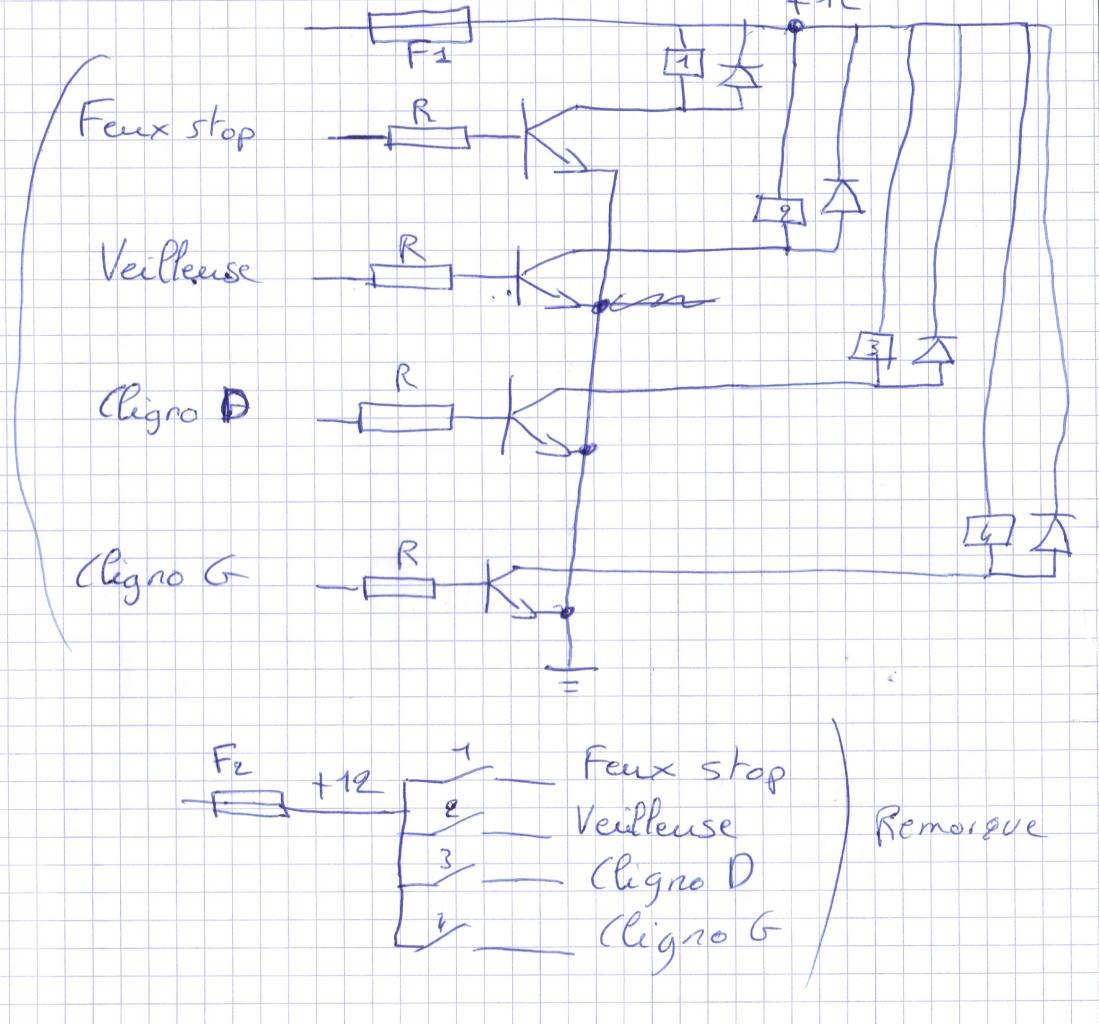 +12
F1
1
R
Feux stop
2
R
Veilleuse
3
R
Cligno D
4
R
Cligno G
F2
+12
1
Feux stop
2
Veilleuse
Remorque
3
Cligno D
4
Cligno G